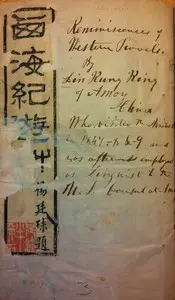 西海紀遊屮
廷球題
Reminiscences of
Western Travels.
By
Lin
of Amoy
China
Who visited
in 1847, & 9 and
was afterwards employed
as Linguist to the
U. S. Consulate